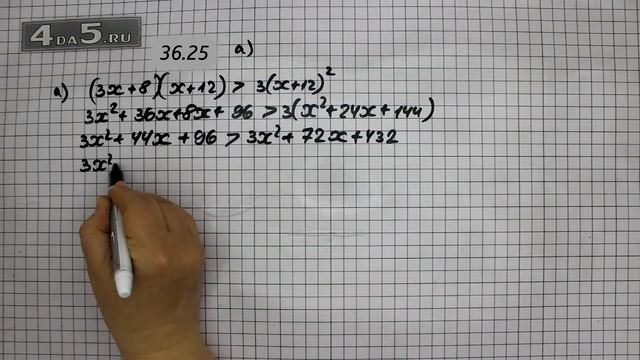 4 DA 5.RU
36.25 а)
а) (3x+8)(x+12) > 3(x+12)²
3x² + 36x+8x+ 96 > 3(x²+24x+144)
3x² + 44x + 96 > 3x² + 72x + 432
3x²